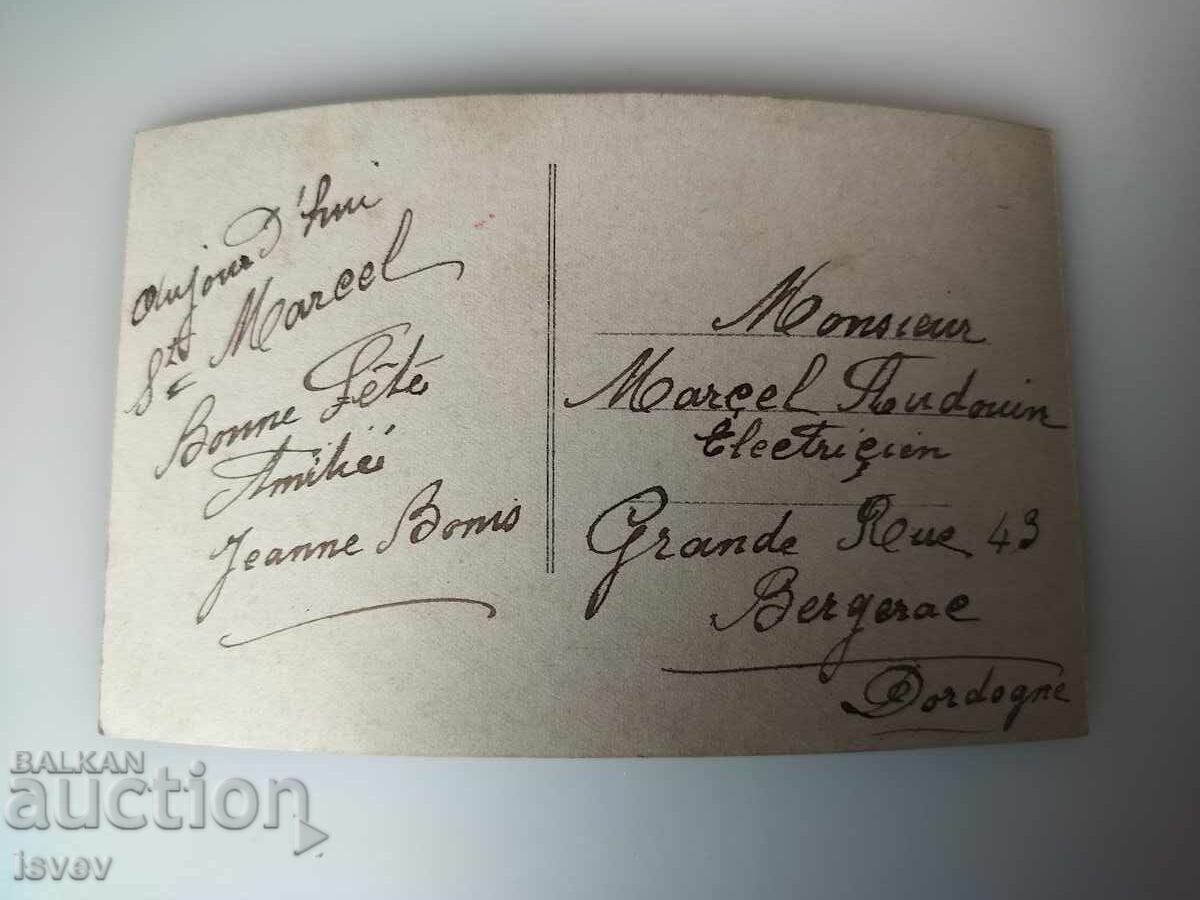 Aujour D'hui
Ste Marcel
Bonne Fête
Amitié
Jeanne Bonis
Monsieur
Marçel Audouin
Électriçien
Grande Rue 43
Bergerac
Dordogne
BALKAN
auction
isvev